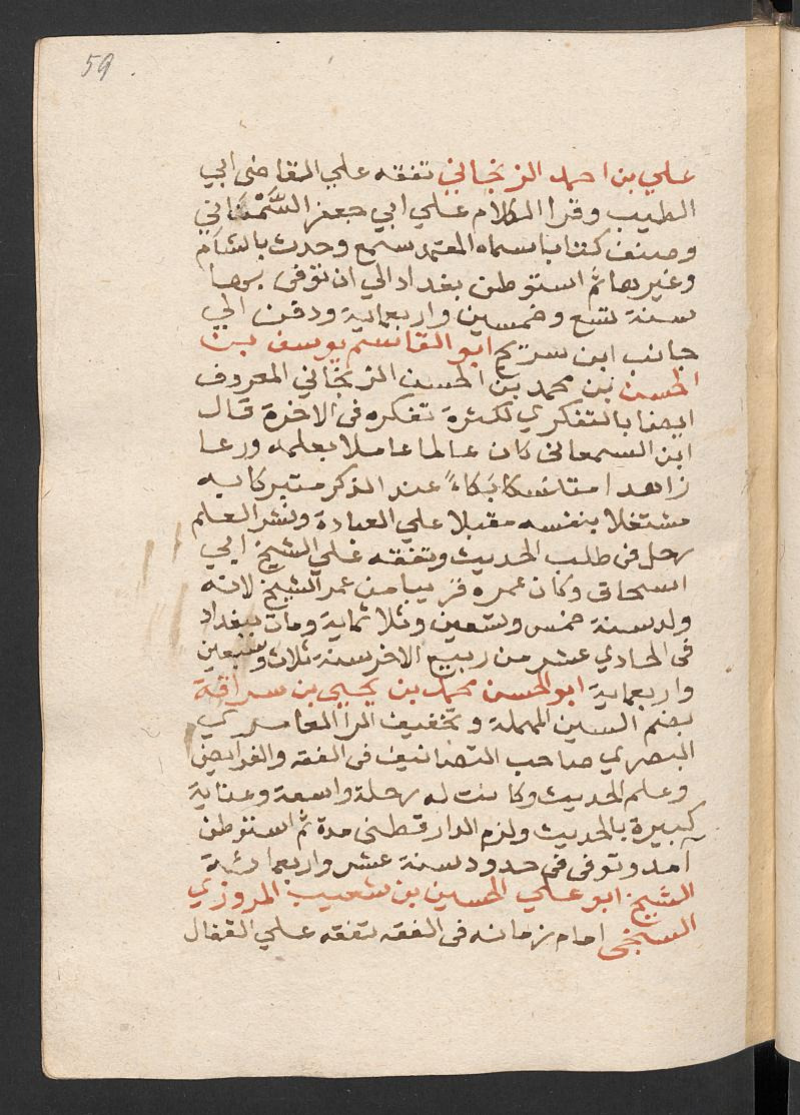 59
علي بن احمد الزنجاني تفقه علي القاضي ابي
الطيب وقرا الكلام علي ابي جعفر السَّمْنَاني
وصنف كتابا سماه المعتمد سمع وحدث بالشام
وغيرها ثم استوطن بغداد الي ان توفي بها
سنة تسع وخمسين واربعماية ودفن الي
جانب ابن سريج ابو القاسم يوسف بن
الحسن بن محمد بن الحسن الزنجاني المعروف
ايضا بالتفكري لكثرة تفكره في الاخرة قال
ابن السمعاني كان عالما عاملا بعلمه ورعا
زاهدا متنسكا بَكاءً عند الذكر متبركا به
مشتغلا بنفسه مقبلا علي العبادة ونشر العلم
رحل في طلب الحديث وتفقه علي الشيخ ابي
اسحاق وكان عمره قريبا من عمر الشيخ لانه
ولد سنة خمس وتسعين وثلاثماية ومات ببغداد
في الحادي عشر من ربيع الاخر سنة ثلاث وسبعين
واربعماية ابو الحسن محمد بن يحيي بن سراقة
بضم السين المهملة وتخفيف الرا العامري
البصري صاحب التصانيف في الفقه والفرايض
وعلم الحديث وكانت له رحلة واسعة وعناية
كبيرة بالحديث ولزم الدارقطني مدة ثم استوطن
آمد وتوفي في حدود سنة عشر واربعمائة
الشيخ ابو علي الحسين بن شعيب المروزي
السنجي امام زمانه في الفقه تفقه علي القفال